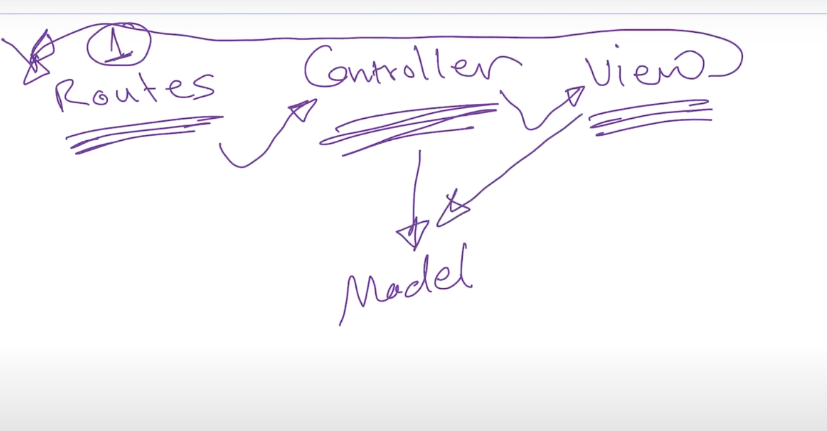 1
Routes Controller View
Model